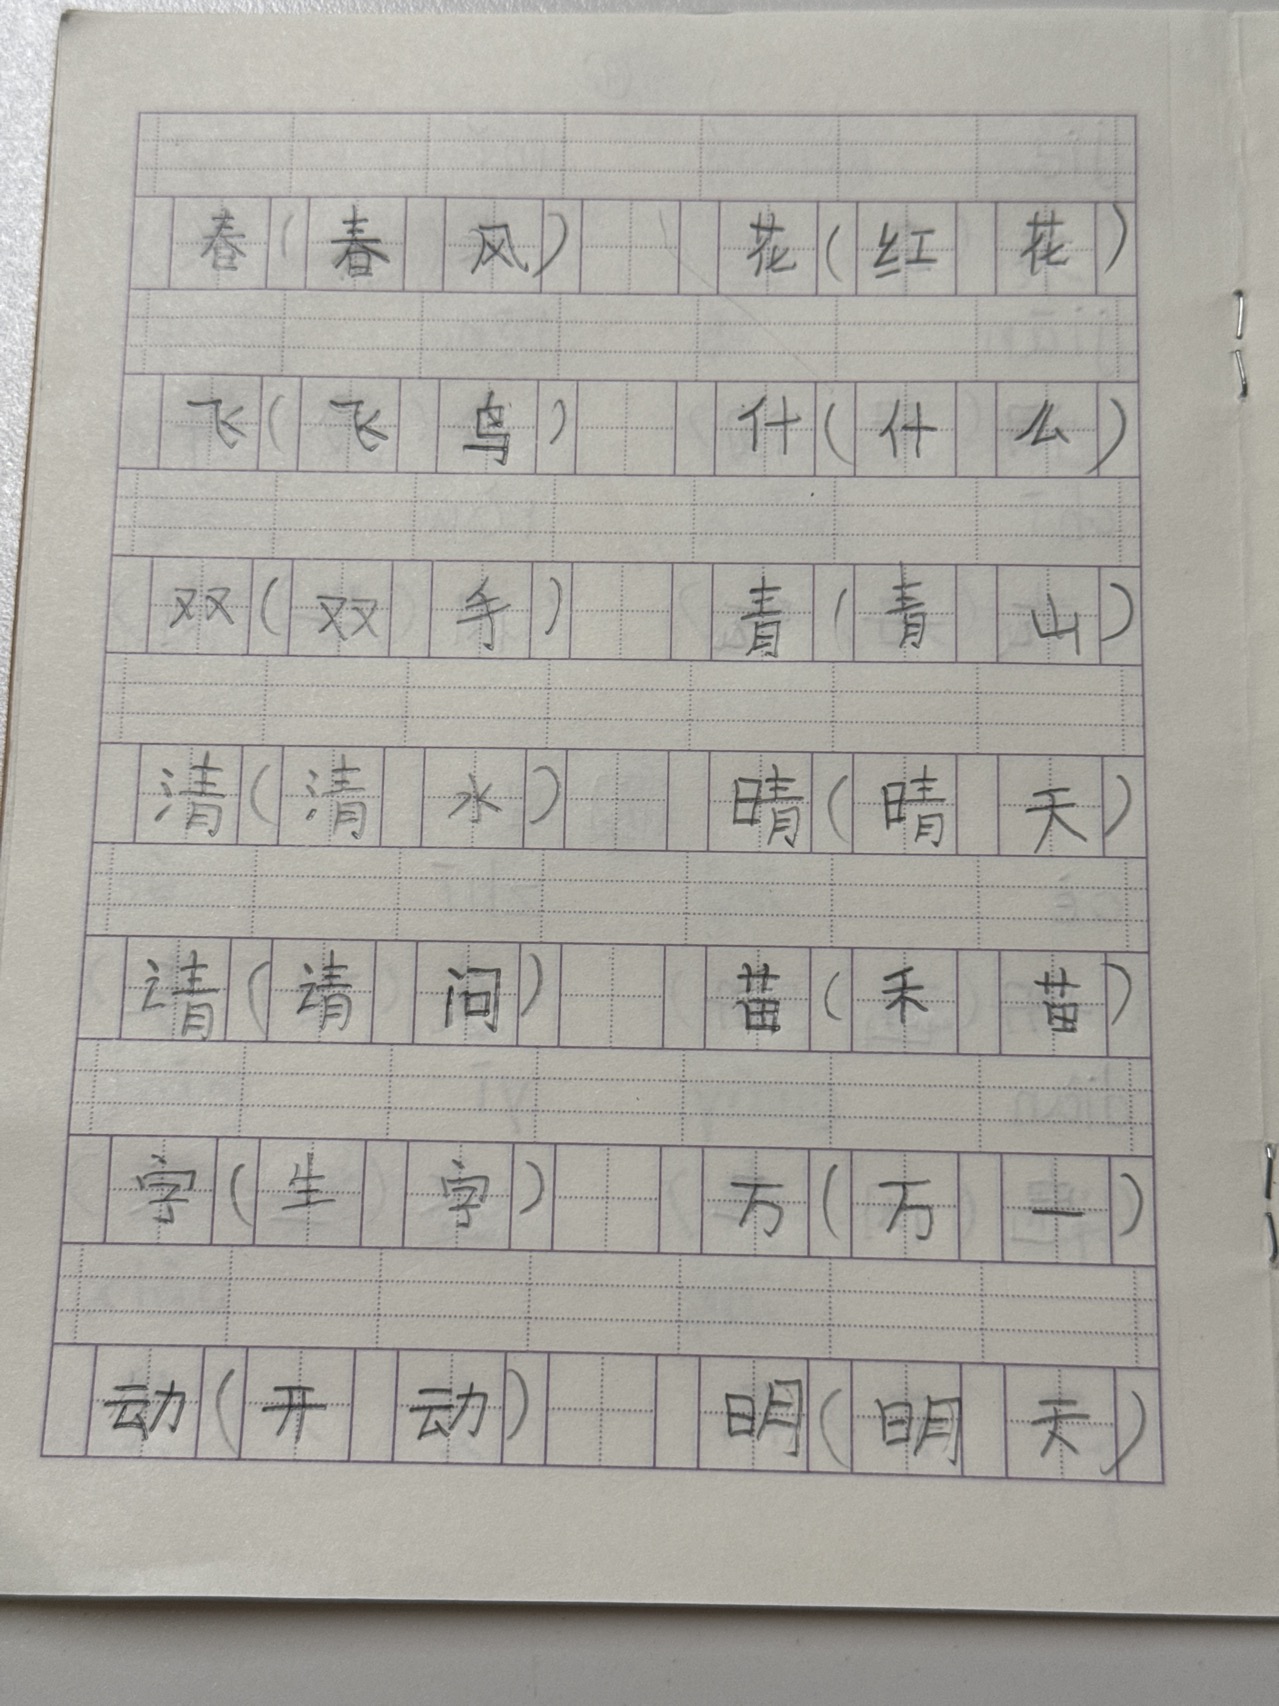 春(春风) 花(红花)
飞(飞鸟) 什(什么)
双(双手) 青(青山)
清(清水) 晴(晴天)
请(请问) 苗(禾苗)
字(生字) 万(万一)
动(开动) 明(明天)